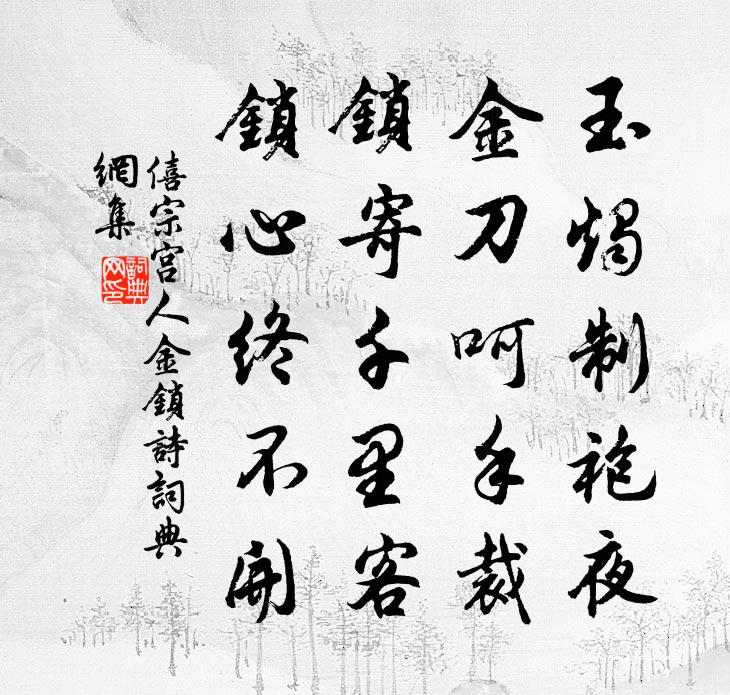 玉燭制袍夜
金刀呵手裁
鎖寄千里客
鎖心終不開
僖宗宮人金鎖詩詞典
網集
詞典網印